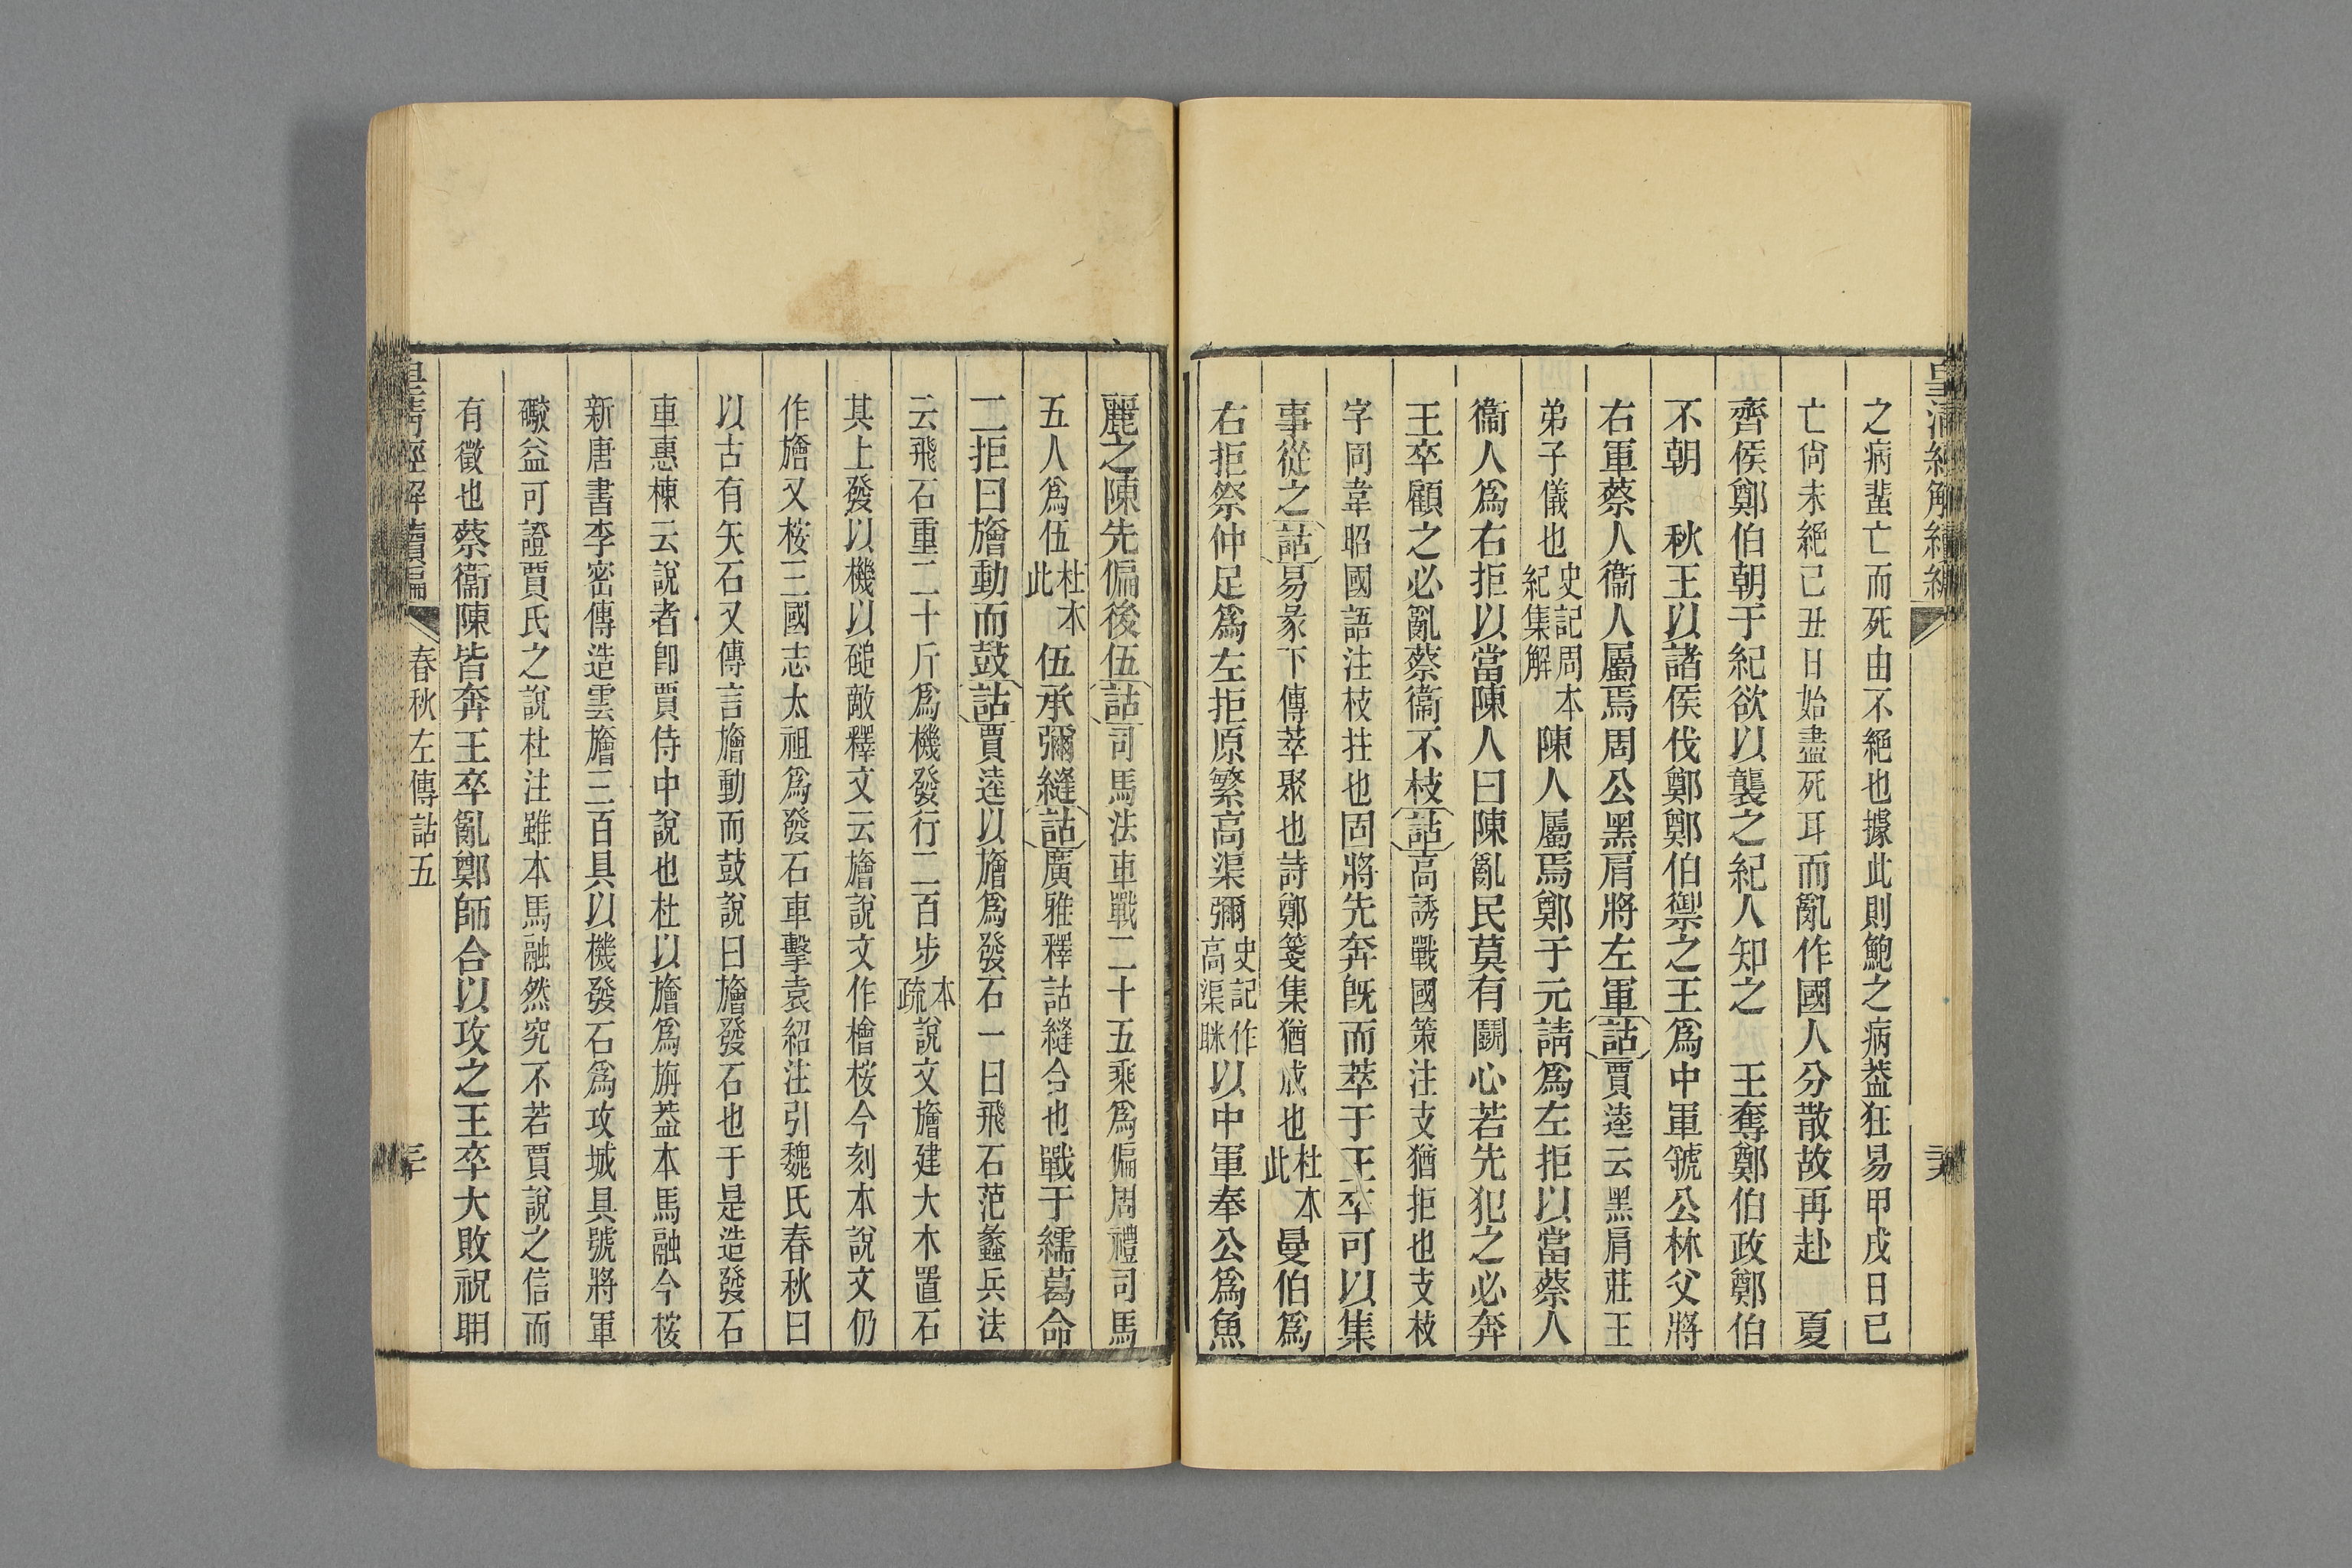 皇清經解續編
之病蜚亡而死由不絕也據此則鮑之病葢狂易甲戌日已
亡尙未絕己丑日始盡死耳而亂作國人分散故再赴　夏
齊侯鄭伯朝于紀欲以襲之紀人知之　王奪鄭伯政鄭伯
不朝　秋王以諸侯伐鄭鄭伯禦之王爲中軍虢公林父將
右軍蔡人衞人屬焉周公黑肩將左軍詁賈逵云黑肩莊王
弟子儀也史記周本紀集解陳人屬焉鄭子元請爲左拒以當蔡人
衞人爲右拒以當陳人曰陳亂民莫有鬭心若先犯之必奔
王卒顧之必亂蔡衞不枝詁高誘戰國策注支猶拒也支枝
字同韋昭國語注枝拄也固將先奔旣而萃于王卒可以集
事從之詁易彖下傳萃聚也詩鄭箋集猶成也杜本此曼伯爲
右拒祭仲足爲左拒原繁高渠彌史記作高渠眯以中軍奉公爲魚
麗之陳先偏後伍詁司馬法車戰二十五乘爲偏周禮司馬
五人爲伍杜本此伍承彌縫詁廣雅釋詁縫合也戰于繻葛命
二拒曰旝動而鼓詁賈逵以旝爲發石一曰飛石范蠡兵法
云飛石重二十斤爲機發行二百步本疏說文旝建大木置石
其上發以機以磓敵釋文云旝說文作檜桉今刻本說文仍
作旝又桉三國志太祖爲發石車擊袁紹注引魏氏春秋曰
以古有矢石又傳言旝動而鼓說曰旝發石也于是造發石
車惠棟云說者卽賈侍中說也杜以旝爲旃葢本馬融今桉
新唐書李密傳造雲旝三百具以機發石爲攻城具號將軍
礮益可證賈氏之說杜注雖本馬融然究不若賈說之信而
有徵也蔡衞陳皆奔王卒亂鄭師合以攻之王卒大敗祝聃
皇清經解續編　春秋左傳詁五